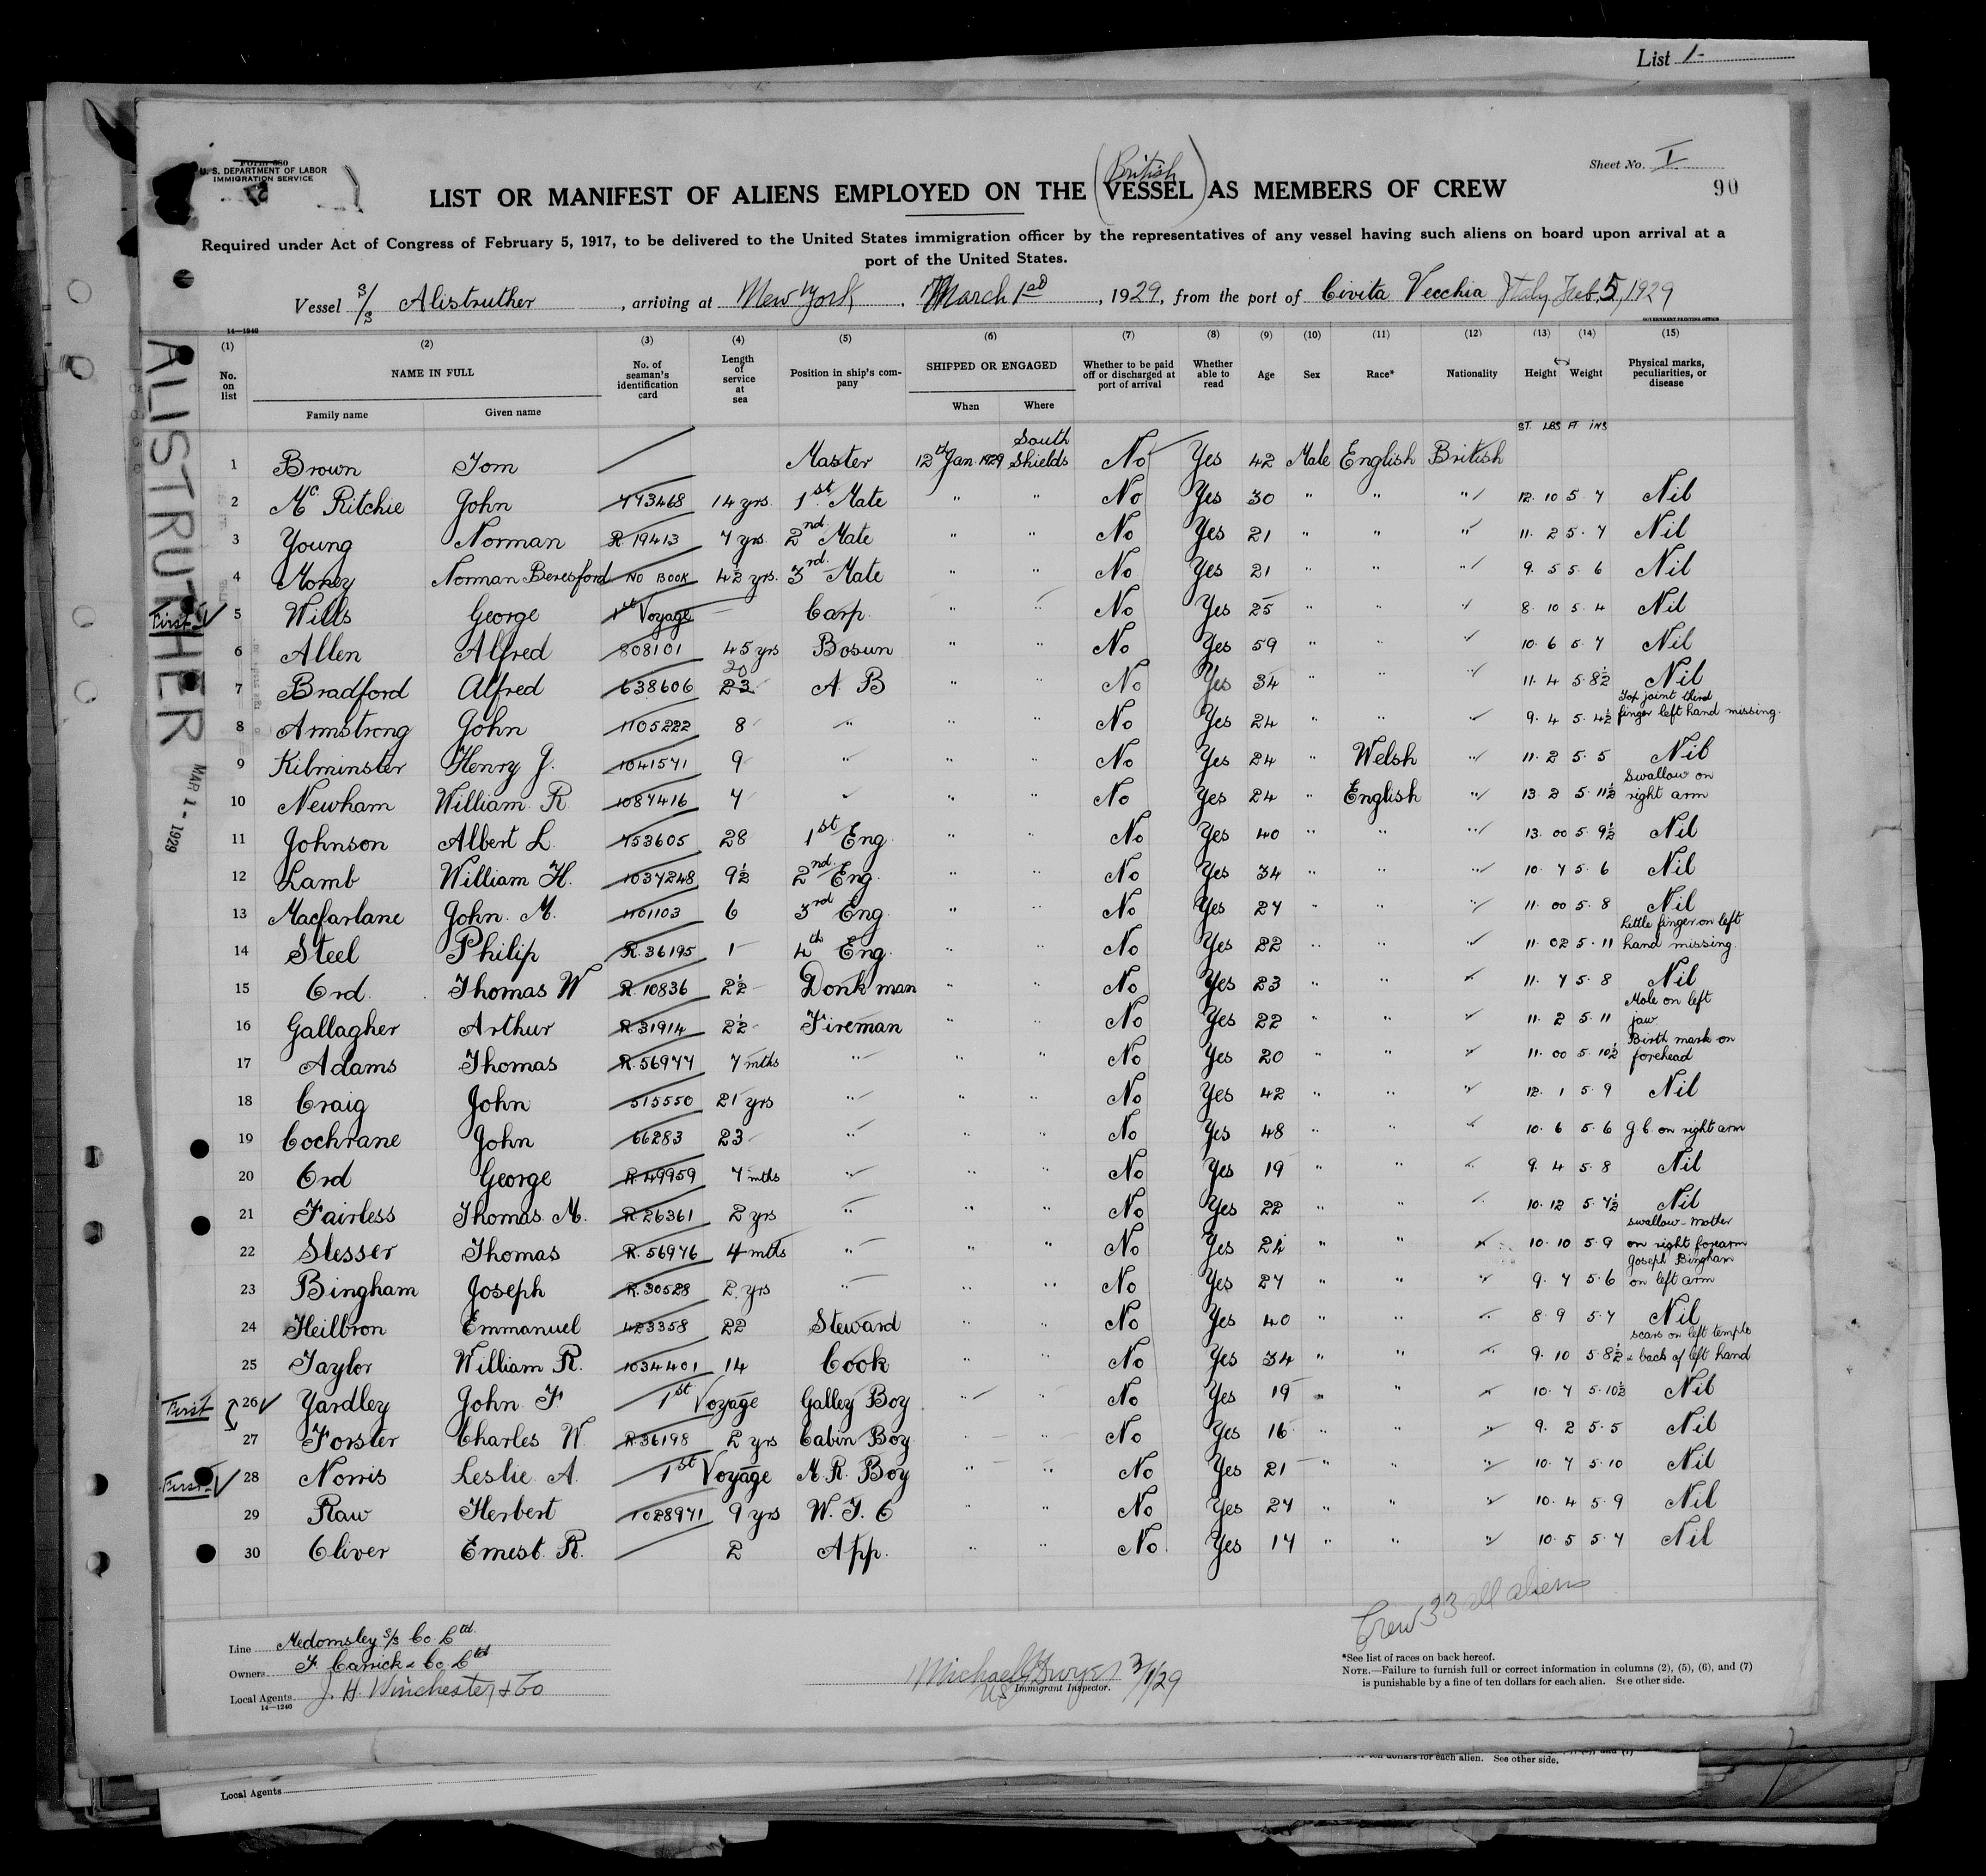 List 1
Form 680
U. S. DEPARTMENT OF LABOR
IMMIGRATION SERVICE
Sheet No. I
90
(British)
LIST OR MANIFEST OF ALIENS EMPLOYED ON THE VESSEL AS MEMBERS OF CREW
Required under Act of Congress of February 5, 1917, to be delivered to the United States immigration officer by the representatives of any vessel having such aliens on board upon arrival at a
port of the United States.
Vessel S/S Alistruther, arriving at New York. March 1st, 1929, from the port of Civita Vecchia Italy Feb. 5, 1929
14—1240 GOVERNMENT PRINTING OFFICE
(1) (2) (3) (4) (5) (6) (7) (8) (9) (10) (11) (12) (13) (14) (15)
No. on list NAME IN FULL Family name Given name No. of seaman's identification card Length of service at sea Position in ship's company SHIPPED OR ENGAGED When Where Whether to be paid off or discharged at port of arrival Whether able to read Age Sex Race* Nationality Height Weight Physical marks, peculiarities, or disease
ST. LBS FT INS
1 Brown Tom Master 12th Jan. 1929 South Shields No Yes 42 Male English British
2 Mc Ritchie John 773468 14 yrs. 1st Mate " " No Yes 30 " " " 12. 10 5. 7 Nil
3 Young Norman R. 19413 7 yrs. 2nd Mate " " No Yes 21 " " " 11. 2 5. 7 Nil
4 Money Norman Beresford NO BOOK 4½ yrs. 3rd Mate " " No Yes 21 " " " 9. 5 5. 6 Nil
First 5 Wills George 1st Voyage — Carp. " " No Yes 25 " " " 8. 10 5. 4 Nil
6 Allen Alfred 808101 45 yrs Bosun " " No Yes 59 " " " 10. 6 5. 7 Nil
7 Bradford Alfred 638606 20 23 A. B " " No Yes 34 " " " 11. 4 5. 8½ Nil
8 Armstrong John 1105222 8 " " " No Yes 24 " " " 9. 4 5. 4½ Top joint third finger left hand missing.
9 Kilminster Henry J. 1041571 9 " " " No Yes 24 " Welsh " 11. 2 5. 5 Nil
10 Newham William. R. 1087416 7 " " " No Yes 24 " English " 13. 2 5. 11½ Swallow on right arm
11 Johnson Albert L. 753605 28 1st Eng. " " No Yes 40 " " " 13. 00 5. 9½ Nil
12 Lamb William H. 1037248 9½ 2nd Eng. " " No Yes 34 " " " 10. 7 5. 6 Nil
13 Macfarlane John. M. 1101103 6 3rd Eng. " " No Yes 27 " " " 11. 00 5. 8 Nil
14 Steel Philip R. 36195 1 4th Eng. " " No Yes 22 " " " 11. 02 5. 11 Little finger on left hand missing.
15 Ord. Thomas W R. 10836 2½ Donkman " " No Yes 23 " " " 11. 7 5. 8 Nil
16 Gallagher Arthur R. 31914 2½ Fireman " " No Yes 22 " " " 11. 2 5. 11 Mole on left jaw
17 Adams Thomas R. 56977 7 mths " " " No Yes 20 " " " 11. 00 5. 10½ Birth mark on forehead
18 Craig John 515550 21 yrs " " " No Yes 42 " " " 12. 1 5. 9 Nil
19 Cochrane John 66283 23 " " " No Yes 48 " " " 10. 6 5. 6 J C on right arm
20 Ord George R. 49959 7 mths " " " No Yes 19 " " " 9. 4 5. 8 Nil
21 Fairless Thomas. M. R. 26361 2 yrs " " " No Yes 22 " " " 10. 12 5. 7½ Nil
22 Slesser Thomas R. 56976 4 mths " " " No Yes 24 " " " 10. 10 5. 9 swallow - mother on right forearm
23 Bingham Joseph R. 30528 2 yrs " " " No Yes 27 " " " 9. 7 5. 6 Joseph Bingham on left arm
24 Heilbron Emmanuel 423358 22 Steward " " No Yes 40 " " " 8 9 5. 7 Nil
25 Taylor William R. 1034401 14 Cook " " No Yes 34 " " " 9. 10 5. 8½ scars on left temple & back of left hand
First 26 Yardley John F 1st Voyage Galley Boy " " No Yes 19 " " " 10. 7 5. 10½ Nil
27 Forster Charles W. R. 36198 2 yrs Cabin Boy " " No Yes 16 " " " 9. 2 5. 5 Nil
First 28 Norris Leslie A. 1st Voyage M. R. Boy " " No Yes 21 " " " 10. 7 5. 10 Nil
29 Raw Herbert 1028971 9 yrs W. T. O " " No Yes 27 " " " 10. 4 5. 9 Nil
30 Oliver Ernest. R. 2 App. " " No Yes 17 " " " 10. 5 5. 7 Nil
ALISTRUTHER
MAR 1 - 1929
Crew 33 all aliens
Line Medomsley S/S Co. Ltd.
Owners F. Carrick & Co Ltd
Local Agents J. H. Winchester & Co
14—1240
Michael Dwyer 3/1/29
US Immigrant Inspector.
*See list of races on back hereof.
NOTE.—Failure to furnish full or correct information in columns (2), (5), (6), and (7)
is punishable by a fine of ten dollars for each alien. See other side.
of ten dollars for each alien. See other side.
Local Agents